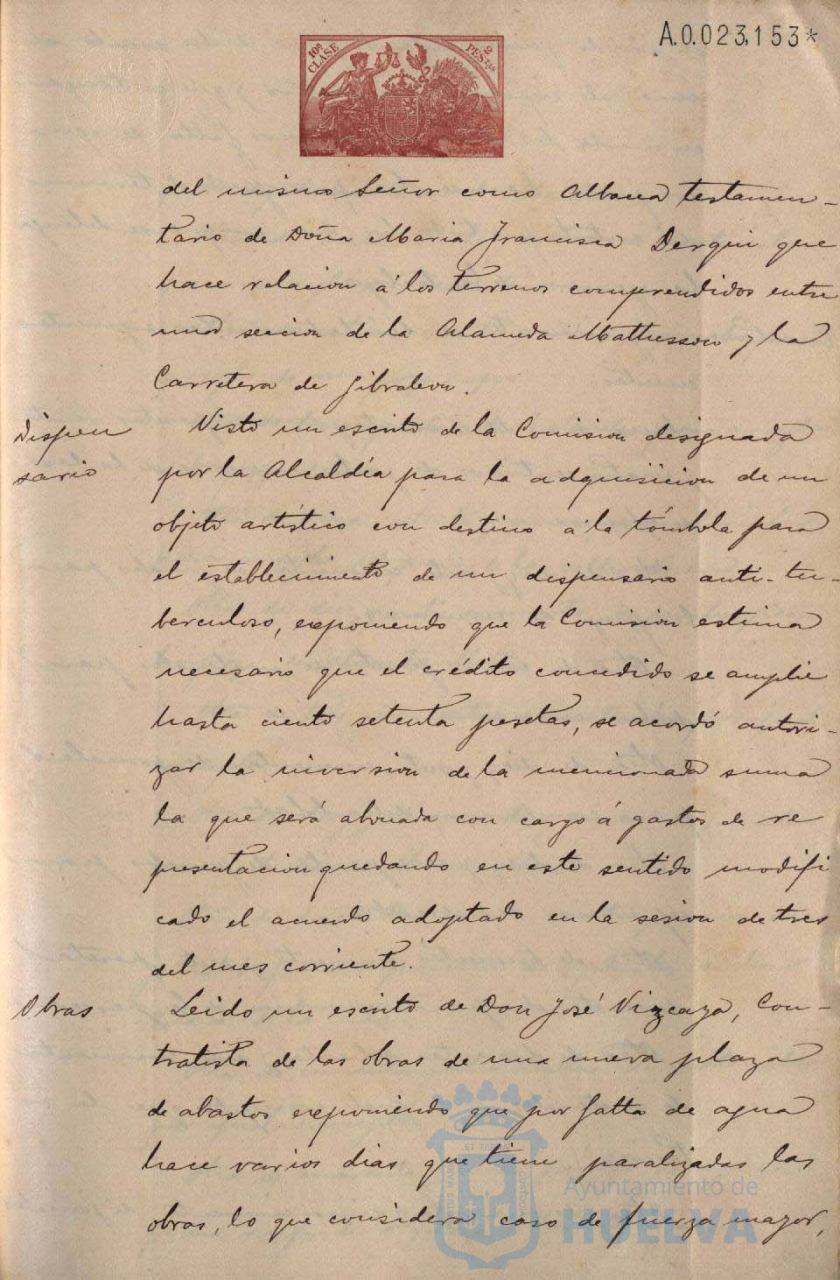 A.0.023,153*
10ª CLASE
2 PESETAS
del mismo Señor como Albacea testamen-
tario de Doña Maria Francisca Dergui que
hace relacion á los terrenos comprendidos entre
una seccion de la Alameda Mathesson y la
Carretera de Gibraleon.
Dispen
sario
Visto un escrito de la Comision designada
por la Alcaldía para la adquisicion de un
objeto artístico con destino á la tómbola para
el establecimiento de un dispensario anti-tu-
berculoso, exponiendo que la Comision estima
necesario que el crédito concedido se amplie
hasta ciento setenta pesetas, se acordó autori-
zar la inversion de la mencionada suma
la que será abonada con cargo á gastos de re
presentacion quedando en este sentido modifi
cado el acuerdo adoptado en la sesion de tres
del mes corriente.
Obras
Leido un escrito de Don José Vizcaya, Con-
tratista de las obras de una nueva plaza
de abastos exponiendo que por falta de agua
hace varios dias que tiene paralizadas las
obras, lo que considera caso de fuerza mayor,
Ayuntamiento de
HUELVA